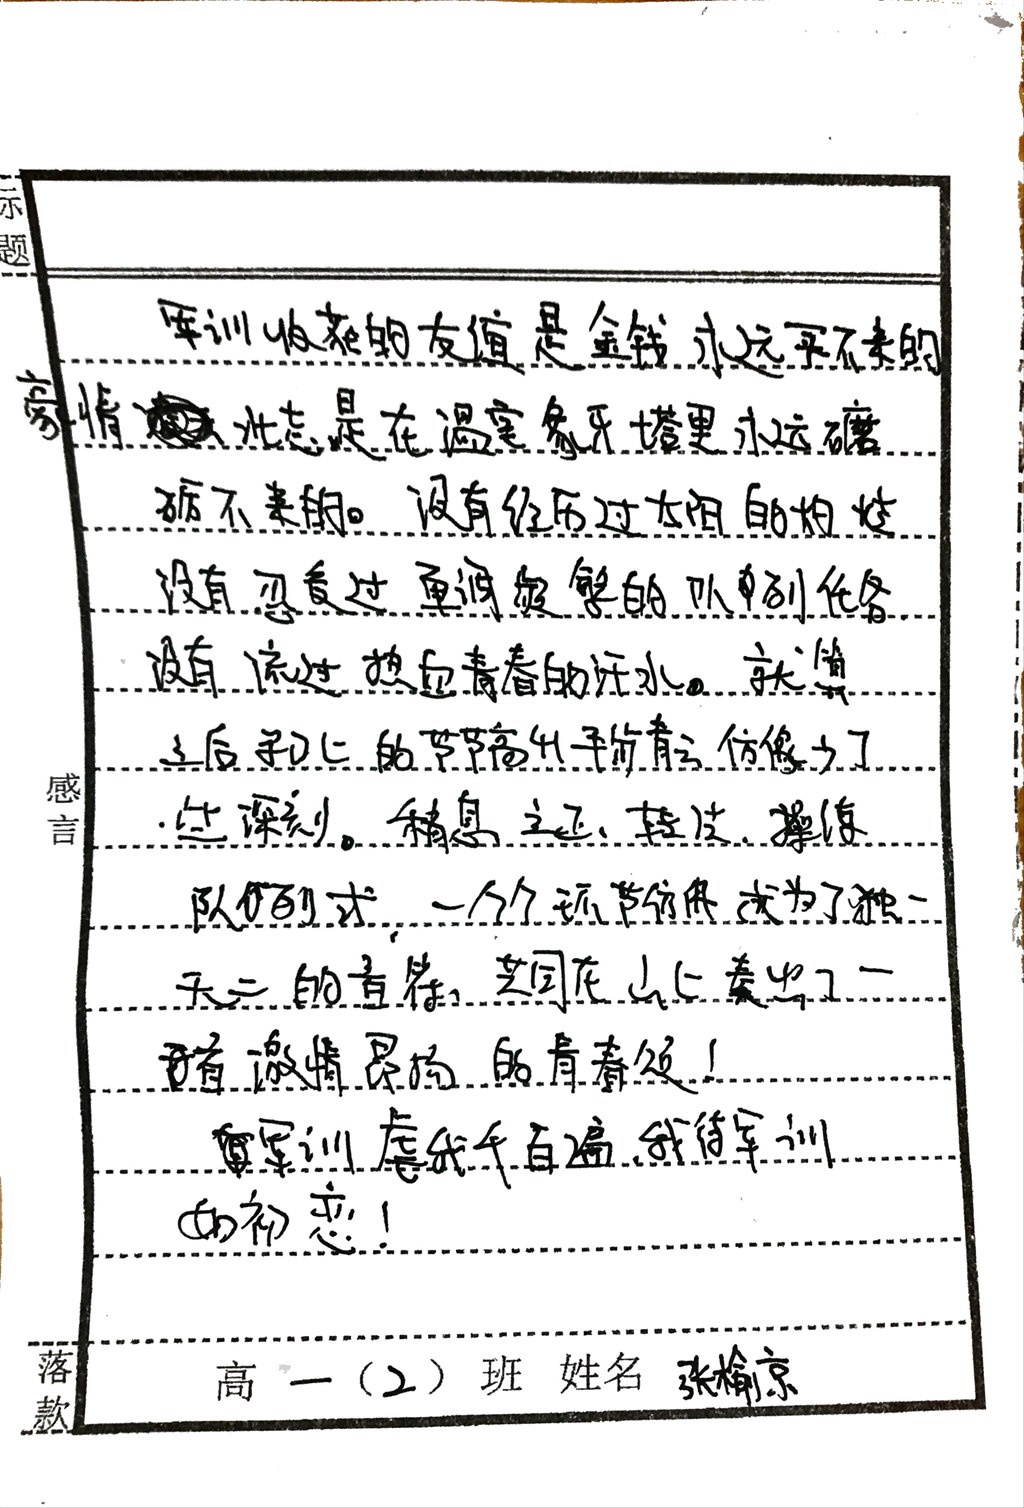 标题
军训收获的友谊是金钱永远买不来的
豪情壮志是在温室象牙塔里永远磨
砺不来的。没有经历过太阳的灼烧
没有忍受过单调繁的队列任务
没有流过热血青春的汗水。就算
之后的节节高升平步青云仿像少了
些深刻。稍息、立正、转法、操练
队列式,一个个环节仿佛成为了独一
无二的音符、共同在山上奏出了一
首激情昂扬的青春颂!
军训虐我千百遍,我待军训
如初恋!
感言
落款 高一(2)班 姓名 张榆京